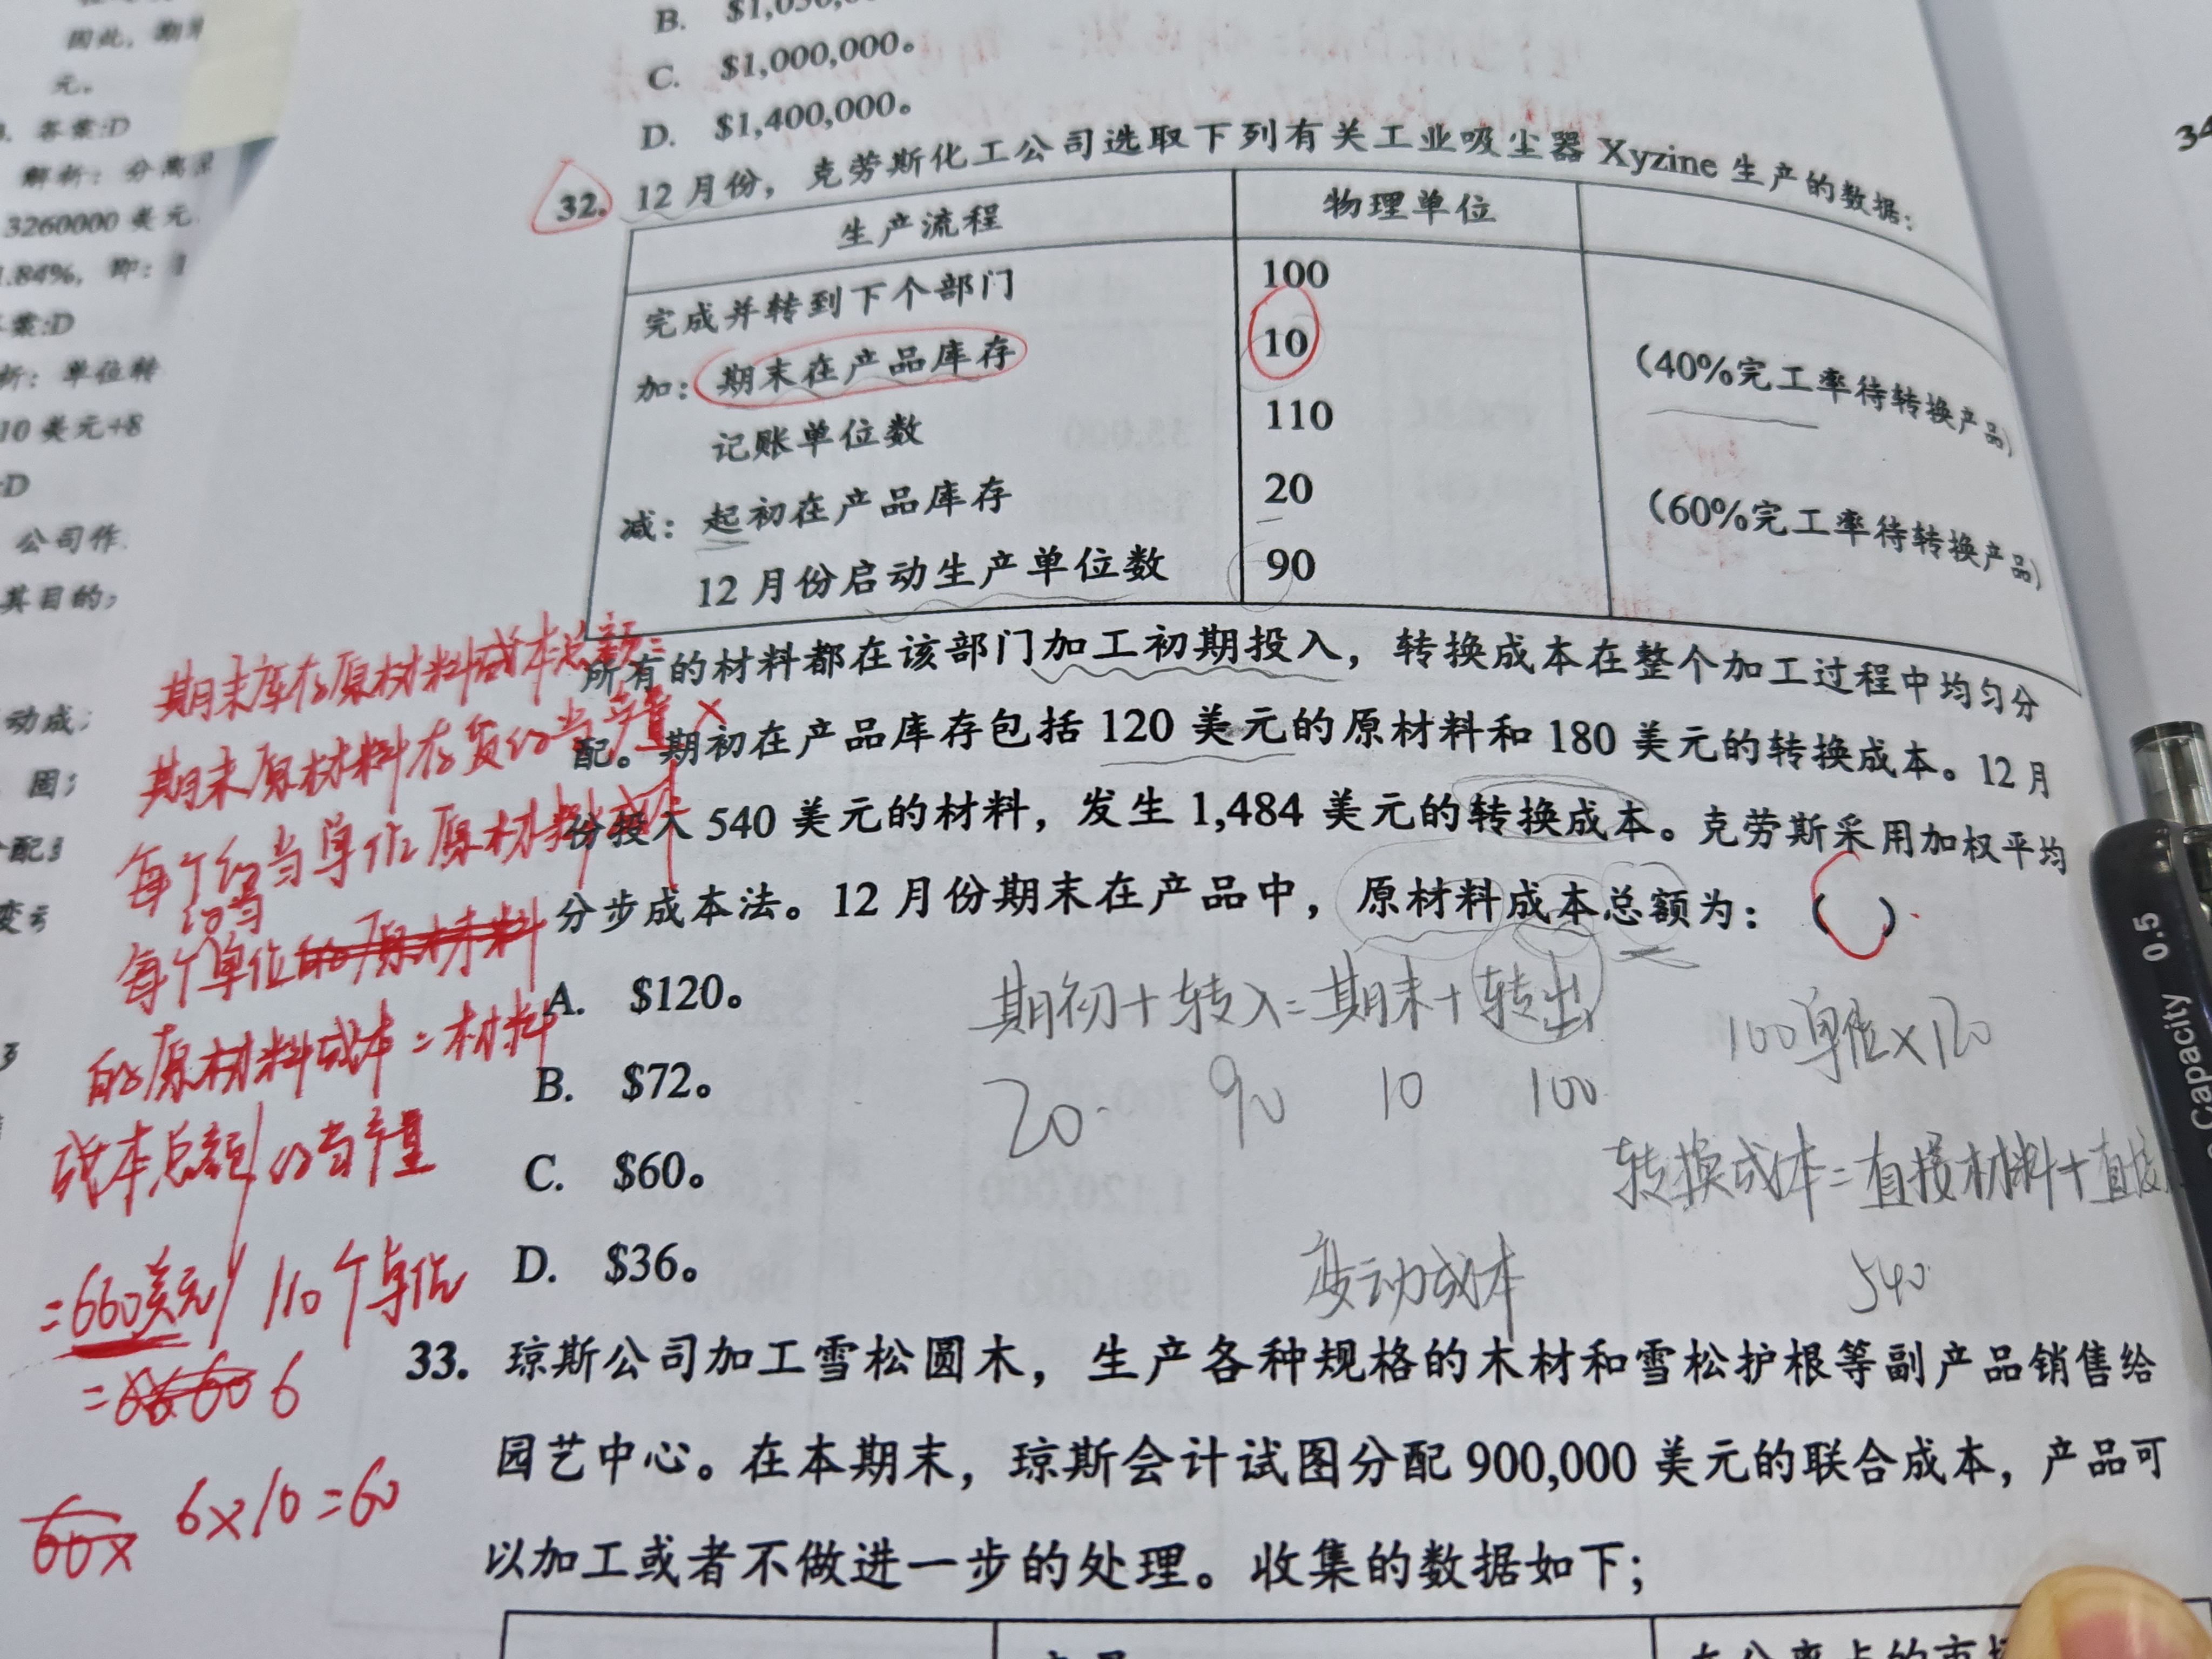 因此，期末
元。
答案:D
解析：分离
3260000 美元
1.84%，即：
答案:D
析：单位转
10 美元+8
:D
公司作
其目的,
动成
B. $1,050,
C. $1,000,000。
D. $1,400,000。
32. 12 月份，克劳斯化工公司选取下列有关工业吸尘器 Xyzine 生产的数据：
生产流程 物理单位
完成并转到下个部门 100
加：期末在产品库存 10 (40%完工率待转换产品)
记账单位数 110
减：起初在产品库存 20 (60%完工率待转换产品)
12 月份启动生产单位数 90
所有的材料都在该部门加工初期投入，转换成本在整个加工过程中均匀分
配。期初在产品库存包括 120 美元的原材料和 180 美元的转换成本。12 月
份投入 540 美元的材料，发生 1,484 美元的转换成本。克劳斯采用加权平均
分步成本法。12 月份期末在产品中，原材料成本总额为：（ ）.
A. $120。
B. $72。
C. $60。
D. $36。
期初+转入=期末+转出
20 90 10 100
100单位×120
转换成本=直接材料+直接
540
变动成本
期末库存原材料成本总额=
期末原材料存货约当产量×
每个约当单位原材料成本
每个约当单位
的原材料成本=材料
成本总额/约当产量
=660美元/110个单位
= 6
6×10=60
33. 琼斯公司加工雪松圆木，生产各种规格的木材和雪松护根等副产品销售给
园艺中心。在本期末，琼斯会计试图分配 900,000 美元的联合成本，产品可
以加工或者不做进一步的处理。收集的数据如下;
34
0.5
Capacity